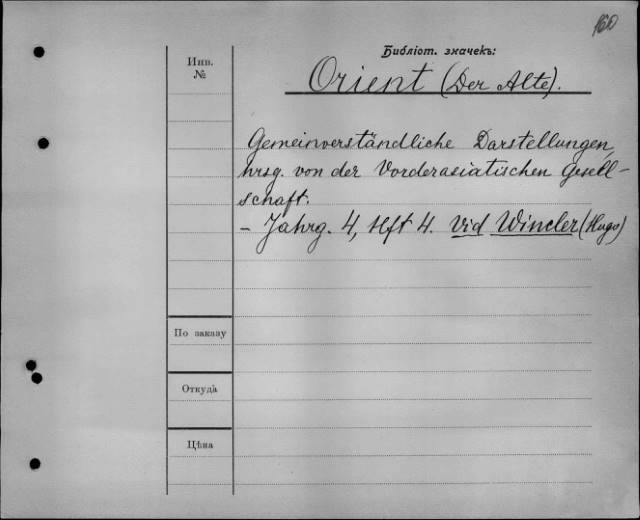 160
Библіот. значекъ:
Инв.
№
Orient (Der Alte).
Gemeinverständliche Darstellungen,
hrsg. von der Vorderasiatischen Gesell-
schaft.
- Jahrg. 4, Hft 4. Vid Wincler (Hugo)
По заказу
Откуда
Цѣна